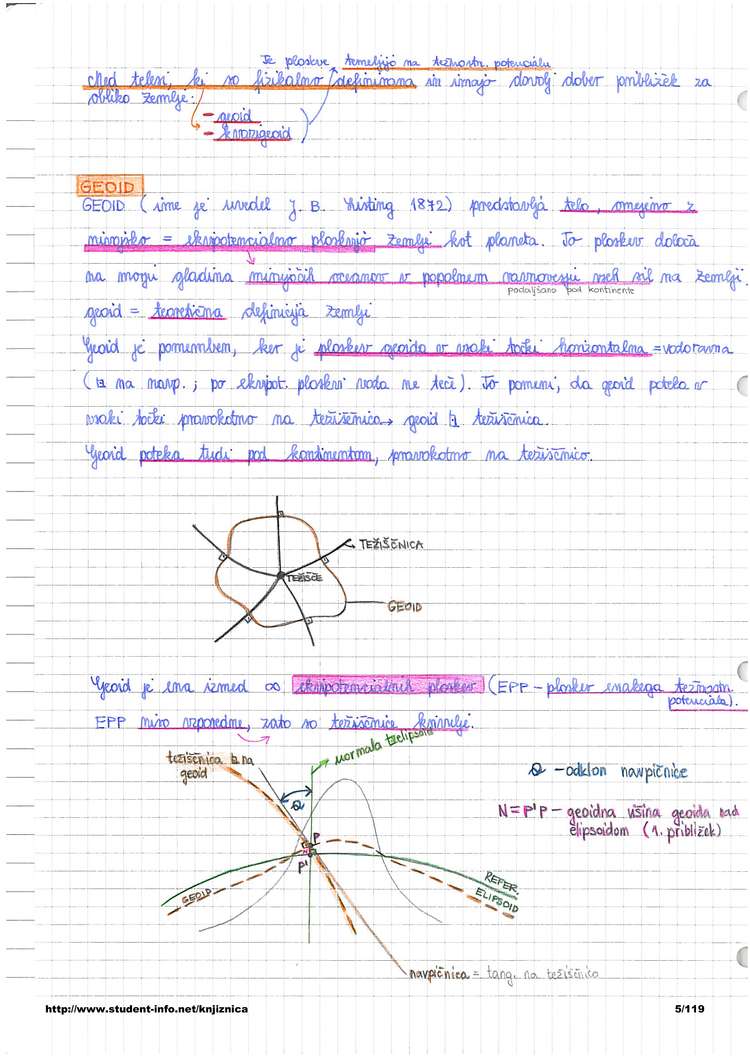 Te ploskve temeljijo na težnostn. potencialu
Med telesi, ki so fizikalno definirana in imajo dovolj dober približek za
obliko Zemlje:
- geoid
- kvazigeoid
GEOID
GEOID (ime je uvedel J. B. Listing 1872) predstavlja telo, omejeno z
nivojsko = ekvipotencialno ploskvijo Zemlje kot planeta. To ploskev določa
na morju gladina mirujočih oceanov v popolnem ravnovesju vseh sil na Zemlji.
podaljšano pod kontinente
geoid = teoretična definicija Zemlje
Geoid je pomemben, ker je ploskev geoida v vsaki točki horizontalna = vodoravna
(⊾ na navp.; po ekvipot. ploskvi voda ne teče). To pomeni, da geoid poteka v
vsaki točki pravokotno na težiščnico → geoid ⊾ težiščnica.
Geoid poteka tudi pod kontinentom, pravokotno na težiščnico.
TEŽIŠČNICA
TEŽIŠČE
GEOID
Geoid je ena izmed ∞ ekvipotencialnih ploskev (EPP - ploskev enakega težnostn.
potenciala).
EPP niso vzporedne, zato so težiščnice krivulje.
težiščnica ⊾ na
geoid
normala ⊾ elipsoid
- odklon navpičnice
N = P'P - geoidna višina geoida nad
elipsoidom (1. približek)
P
N
P'
GEOID
REFER.
ELIPSOID
navpičnica = tang. na težiščnico
http://www.student-info.net/knjiznica
5/119